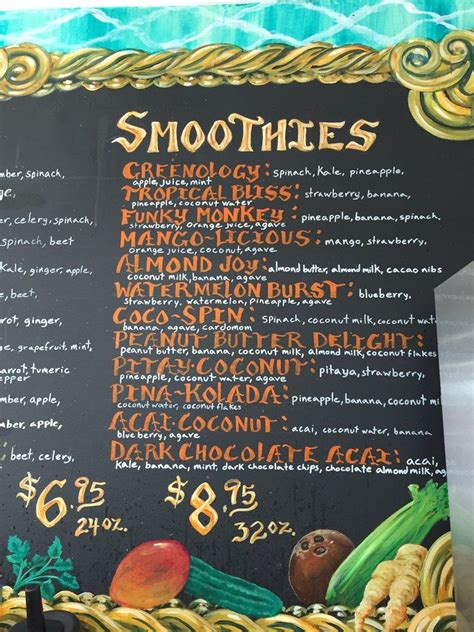 SMOOTHIES
GREENOLOGY: spinach, kale, pineapple,
apple, juice, mint
TROPICAL BLISS: strawberry, banana,
pineapple, coconut water
FUNKY MONKEY: pineapple, banana, spinach,
strawberry, orange juice, agave
MANGO-LICIOUS: mango, strawberry,
orange juice, coconut, agave
ALMOND JOY: almond butter, almond milk, cacao nibs
coconut milk, banana, agave
WATERMELON BURST: blueberry,
strawberry, watermelon, pineapple, agave
COCO-SPIN: spinach, coconut milk, coconut wat
banana, agave, cardomom
PEANUT BUTTER DELIGHT:
peanut butter, banana, coconut milk, almond milk, coconut flakes
PITAY-COCONUT: pitaya, strawberry,
pineapple, coconut water, agave
PINA-KOLADA: pineapple, banana, coconut milk
coconut water, coconut flakes
ACAI-COCONUT: acai, coconut water, banana
blueberry, agave
DARK CHOCOLATE ACAI: acai,
kale, banana, mint, dark chocolate chips, chocolate almond milk, ag
$6.95 $8.95
24oz. 32oz.
mber, spinach,
ge,
er, celery, spinach,
spinach, beet
kale, ginger, apple,
rot, ginger,
e, grapefruit, mint,
arrot, tumeric
epper
mber, apple,
mber, apple,
beet, celery,